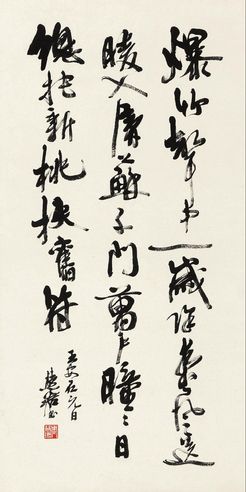 爆竹聲中一歲除春風送
暖入屠蘇千門萬戶瞳〻日
總把新桃換舊符
王安石元日
书